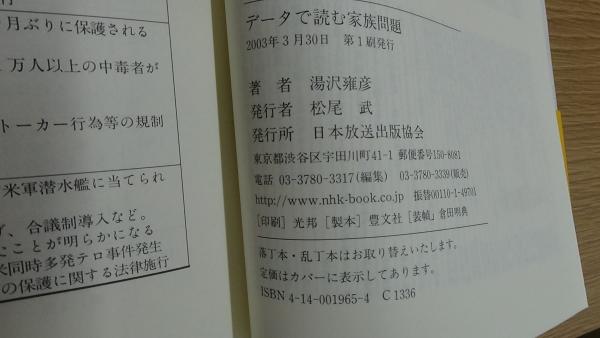 月ぶりに保護される
万人以上の中毒者が
トーカー行為等の規制
米軍潜水艦に当てられ
合議制導入など。
たことが明らかになる
米同時多発テロ事件発生
の保護に関する法律施行
データで読む家族問題
2003年3月30日 第1刷発行
著者 湯沢雍彦
発行者 松尾 武
発行所 日本放送出版協会
東京都渋谷区宇田川町41-1 郵便番号150-8081
電話 03-3780-3317(編集) 03-3780-3339(販売)
http://www.nhk-book.co.jp 振替00110-1-49701
[印刷] 光邦 [製本] 豊文社 [装幀] 倉田明典
落丁本・乱丁本はお取り替えいたします。
定価はカバーに表示してあります。
ISBN 4-14-001965-4 C1336